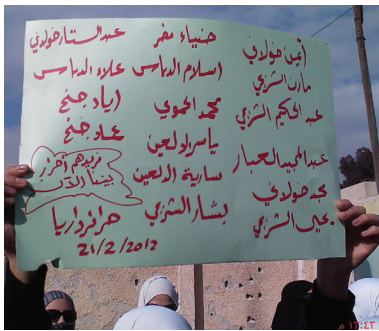 أيمن خولاني
مازن الشربجي
عبد الحكيم الشربجي
عبد المجيد العبار
مجد خولاني
يحيى الشربجي
ضياء
اسلام الدباس
محمد الحموي
ياسر اولعين
سارية الدلعين
بشار الشربجي
عبد الستار خولاني
علاء الدباس
اياد جنح
عماد جنح
نريدهم أحرار
بيننا الآن
حرائر داريا
21/2/2012